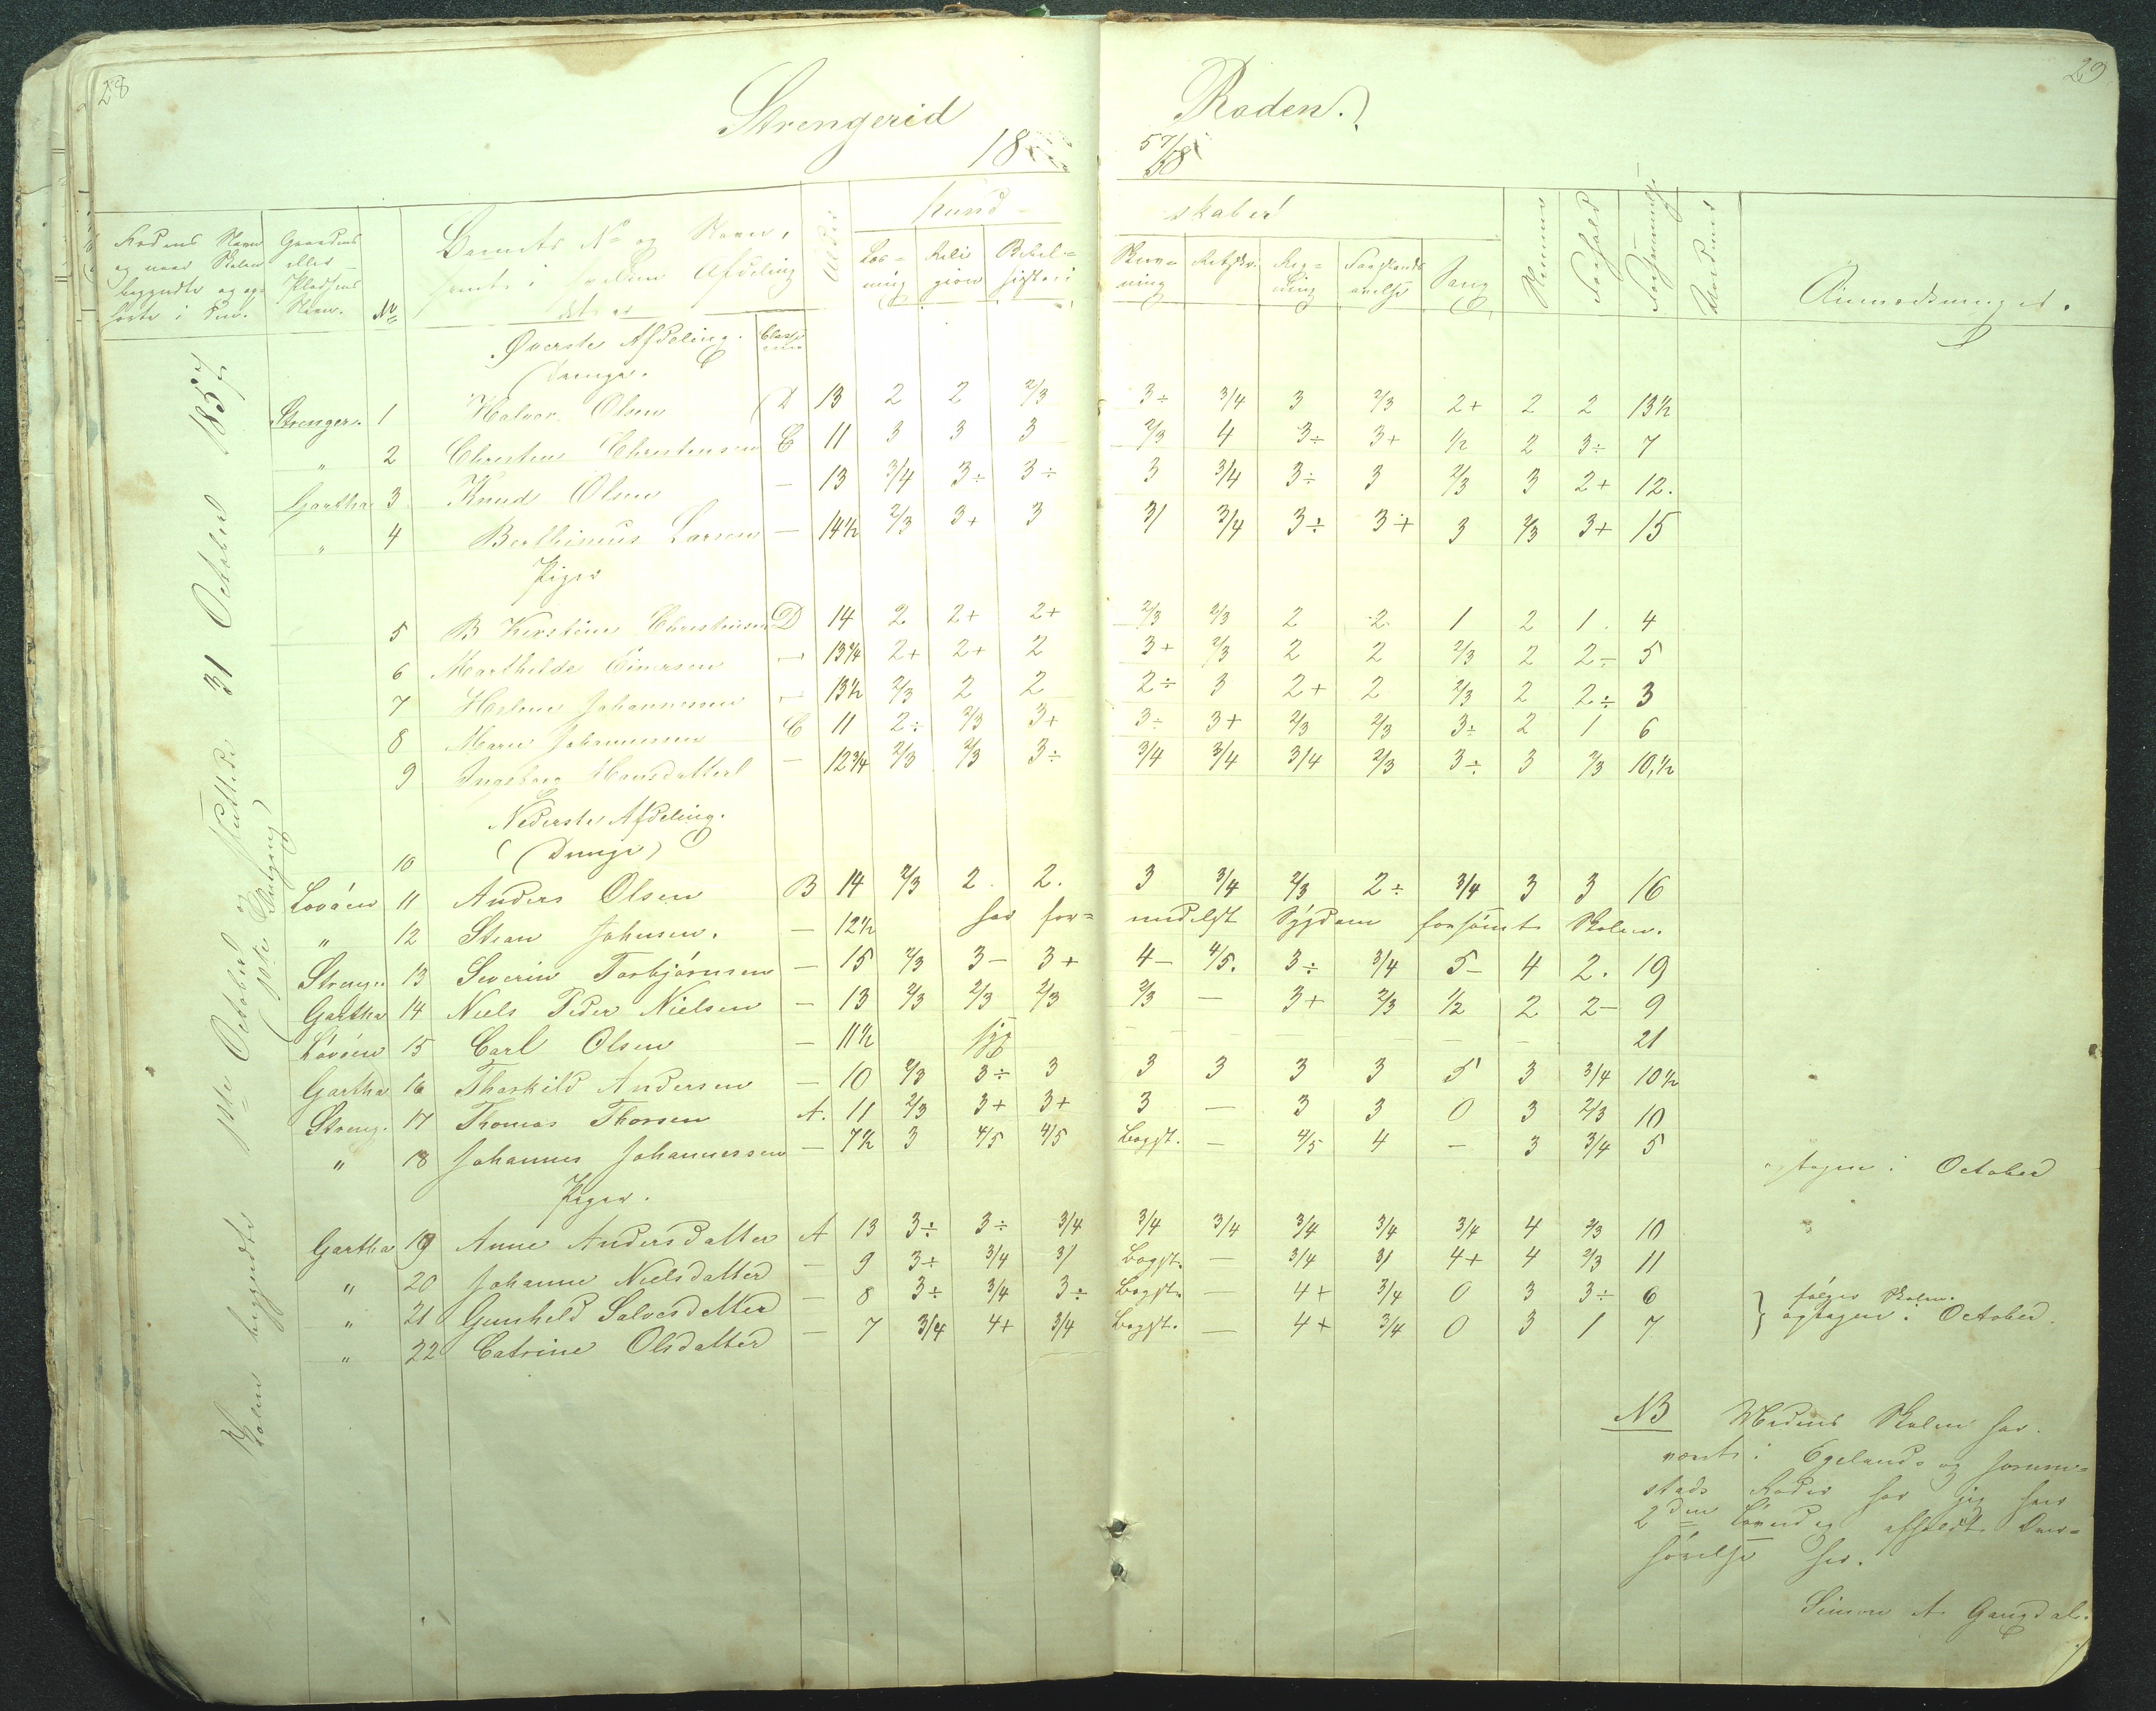 28
29
Strengerid Roden.
18 57/58
Rodens Navn og naar Skolen begyndte og op- hørte i den.
Gaardens eller Pladsens Navn.
No
Barnets No og Navn, samt i hvilken Afdeling det er
Alder
Kund- skaber
Læs- ning
Reli gion
Bibel- historie
Skriv- ning
Retskr.
Reg- ning
Forstands øvelse
Sang
Evner
Forhold
Forsømmelse
Anmærkninger.
Skolen begyndte 1ste October og sluttede 31 October 1857
Øverste Afdeling. Classe
Drenge.
Strenger. 1 Halvor Olsen D 13 2 2 2/3 3÷ 3/4 3 2/3 2+ 2 2 13½
" 2 Christen Christensen C 11 3 3 3 2/3 4 3÷ 3+ ½ 2 3÷ 7
Gartha 3 Knud Olsen — 13 3/4 3÷ 3÷ 3 3/4 3÷ 3 2/3 3 2+ 12.
" 4 Berthinius Larsen — 14½ 2/3 3+ 3 3/ 3/4 3÷ 3+ 3 2/3 3+ 15
Piger
5 B Kirstine Christensen D 14 2 2+ 2+ 2/3 2/3 2 2 1 2 1. 4
6 Marthilde Einersen — 13¾ 2+ 2+ 2 3+ 2/3 2 2 2/3 2 2÷ 5
7 Helene Johannesen — 13½ 2/3 2 2 2÷ 3 2+ 2 2/3 2 2÷ 3
8 Maren Johannesen C 11 2÷ 2/3 3+ 3÷ 3+ 2/3 2/3 3÷ 2 1 6
9 Ingeborg Hansdatter — 12¾ 2/3 2/3 3÷ 3/4 3/4 3/4 2/3 3÷ 3 2/3 10,½
Nederste Afdeling.
10 (Drenge)
Lovøen 11 Anders Olsen B 14 2/3 2. 2. 3 3/4 2/3 2÷ 3/4 3 3 16
" 12 Stean Johnsen. — 12½ har for- medelst Sygdom forsømt Skolen.
Strenger 13 Severin Torbjørnsen — 15 2/3 3— 3+ 4— 4/5. 3÷ 3/4 5— 4 2. 19
Gartha 14 Niels Peder Nielsen — 13 2/3 2/3 2/3 2/3 — 3+ 2/3 ½ 2 2— 9
Lovøen 15 Carl Olsen — 11½ syg — — — — — — — 21
Gartha 16 Thorkild Andersen — 10 2/3 3÷ 3 3 3 3 3 5 3 3/4 10½
Streng. 17 Thomas Thorsen A. 11 2/3 3+ 3+ 3 — 3 3 0 3 2/3 10
" 18 Johannes Johannessen — 7½ 3 4/5 4/5 Bogst. — 4/5 4 — 3 3/4 5 optagen i October
Piger.
Gartha 19 Anne Andersdatter A 13 3÷ 3÷ 3/4 3/4 3/4 3/4 3/4 3/4 4 2/3 10
" 20 Johanne Nielsdatter — 9 3÷ 3/4 3/ Bogst. — 3/4 3/ 4+ 4 2/3 11
" 21 Gunhild Salvesdatter — 8 3÷ 3/4 3÷ Bogst. — 4+ 3/4 0 3 3÷ 6 følger Skolen.
" 22 Catrine Olsdatter — 7 3/4 4+ 3/4 Bogst. — 4+ 3/4 0 3 1 7 optagen i October.
NB Medens Skolen har
været i Egelands og
stads Roder har jeg hver
2den Løverdag afholdt Over-
hørelse her.
Simon A. Gangdal.